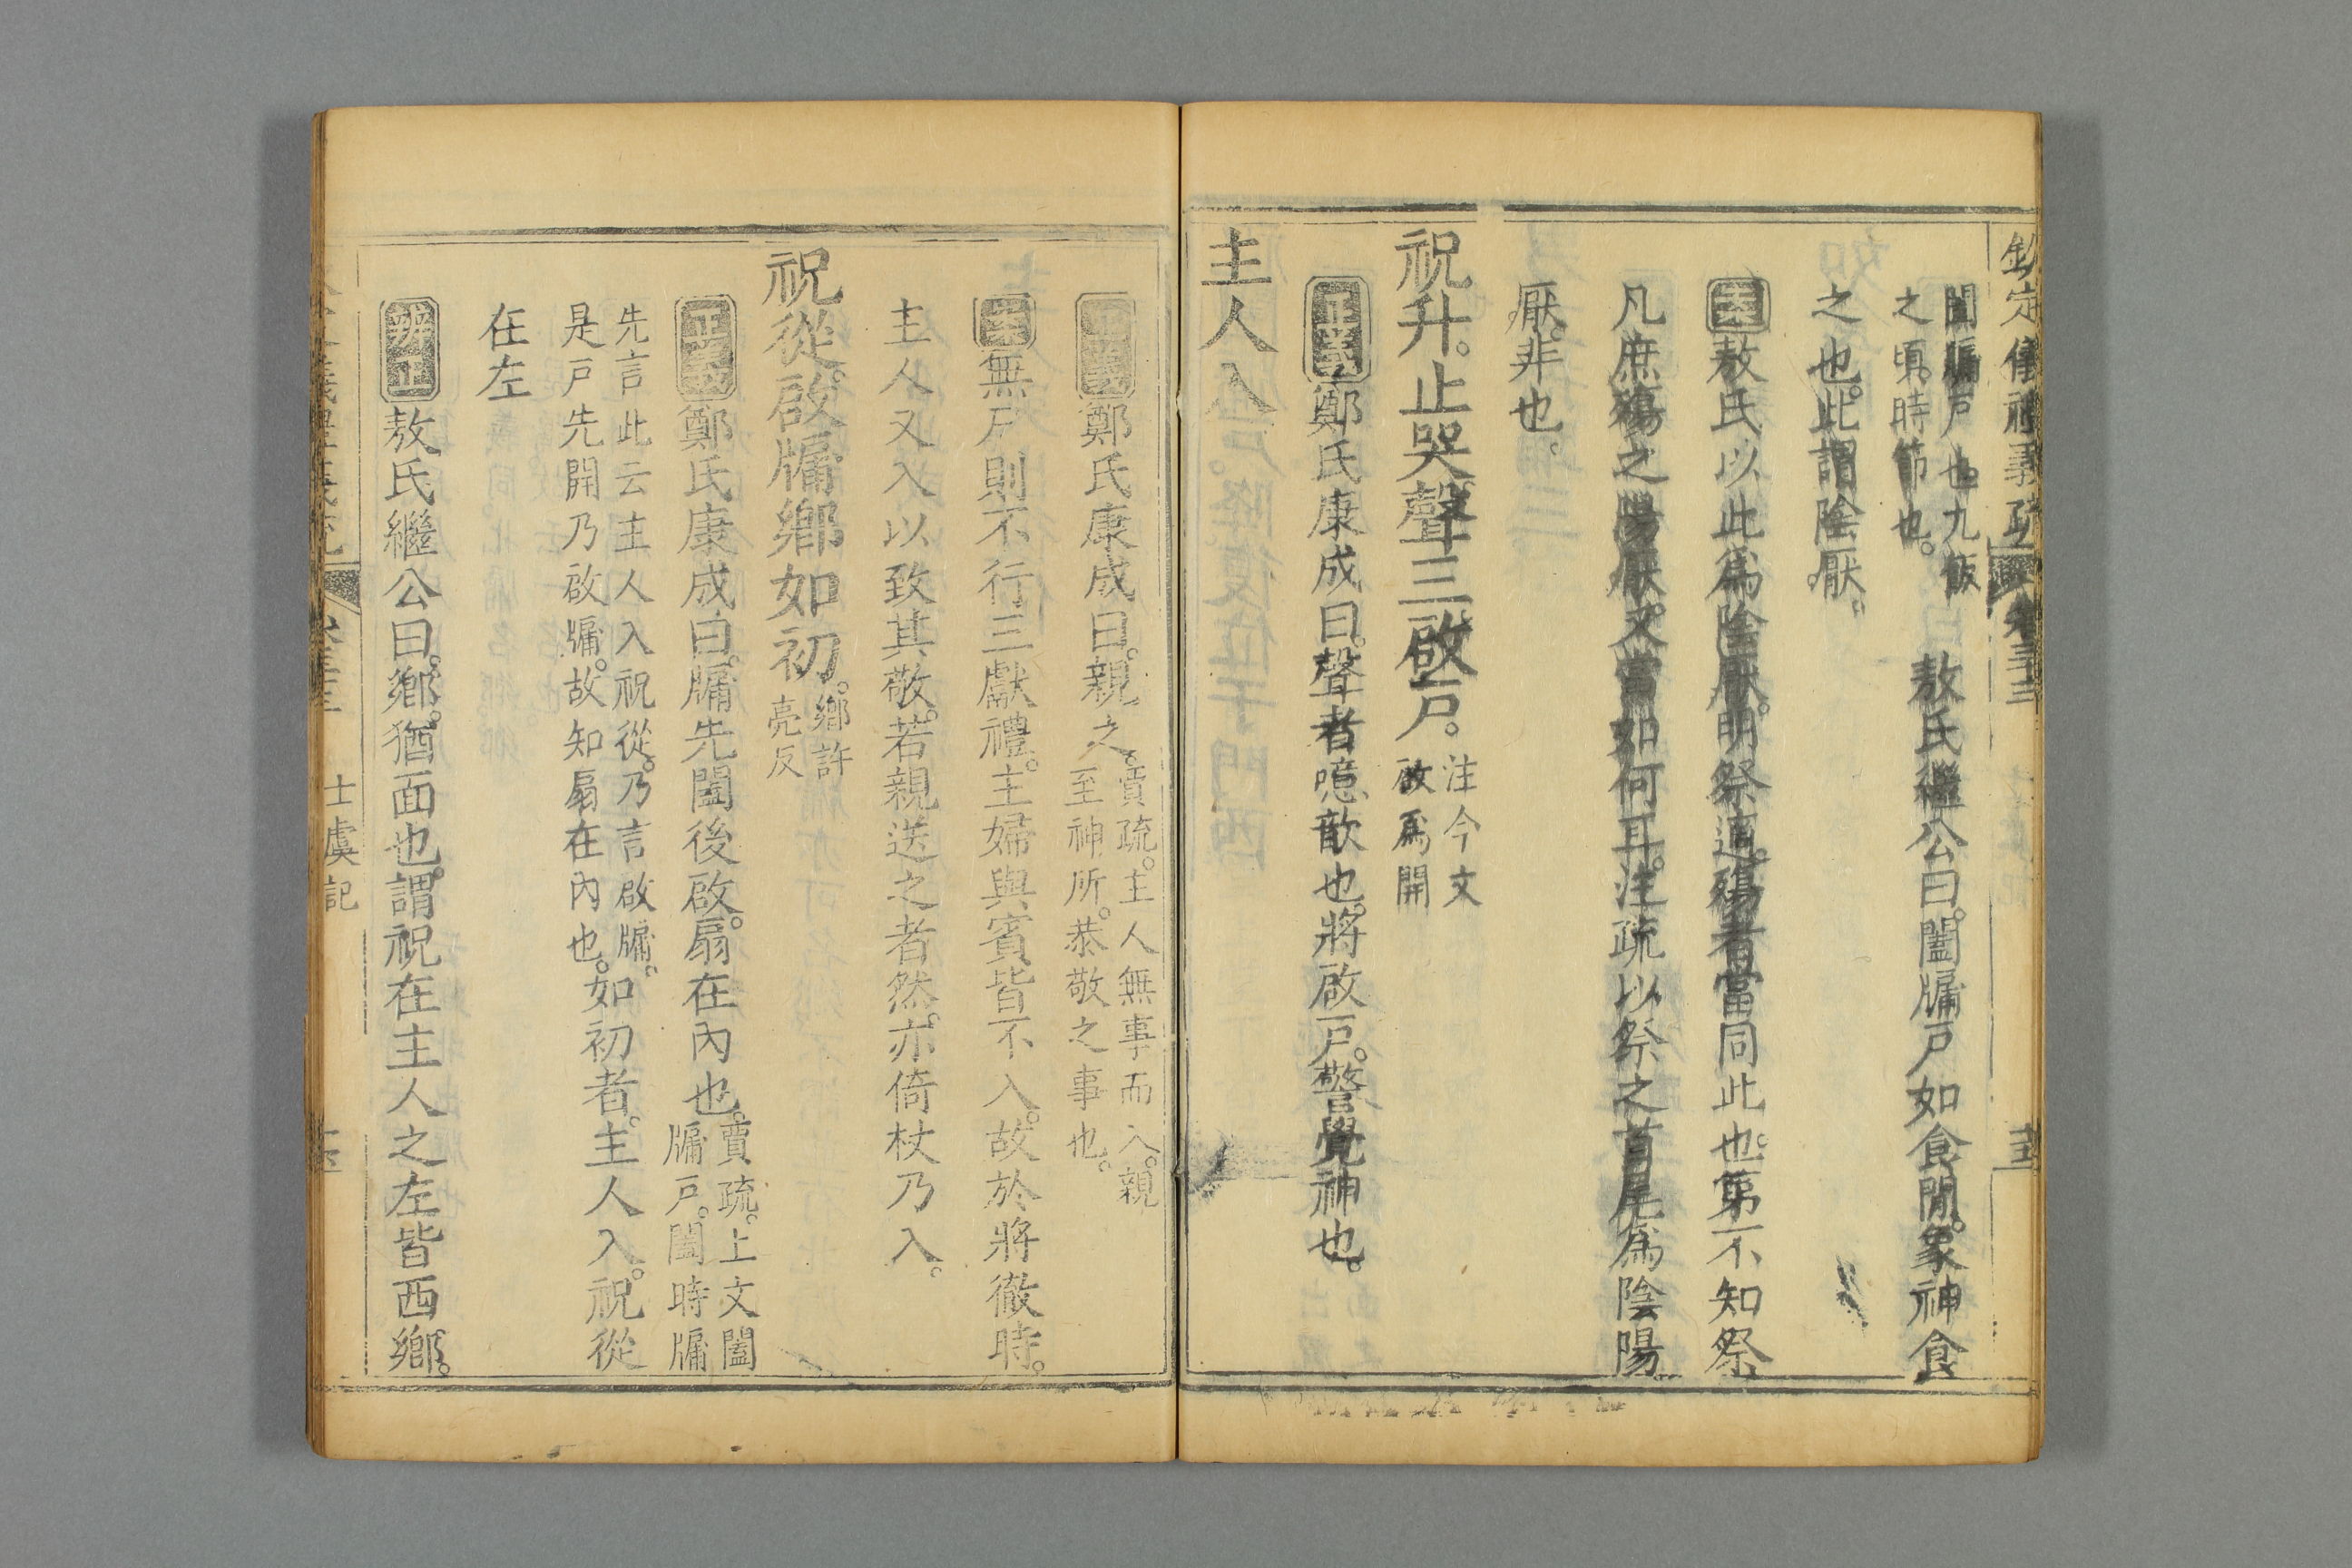 欽定儀禮義疏 卷三十三
闔牖戶也。九飯
之頃。時節也。
敖氏繼公曰。闔牖戶如食閒。象神食
之也。此謂陰厭。
敖氏以此為陰厭。明祭適殤者當同此也。第不知祭
凡庶殤之陽厭。又當如何耳。注疏以祭之首尾為陰陽
厭。非也。
祝升。止哭聲三。啟戶。
注今文
啟爲開
正義鄭氏康成曰。聲者噫歆也。將啟戶。警覺神也。
主人入
正義鄭氏康成曰。親之。
賈疏。主人無事而入。親
至神所。恭敬之事也。
無尸則不行三獻禮。主婦與賓皆不入。故於將徹時。
主人又入以致其敬。若親送之者然。亦倚杖乃入。
祝從。啟牖鄉如初。
鄉許
亮反
正義鄭氏康成曰。牖先闔後啟。扇在內也。
賈疏。上文闔
牖戶。闔時牖
先言此云主人入祝從。乃言啟牖。
是戶先開乃啟牖。故知扇在內也。
如初者。主人入。祝從
在左
辨正敖氏繼公曰。鄉。猶面也。謂祝在主人之左皆西鄉。
士虞記